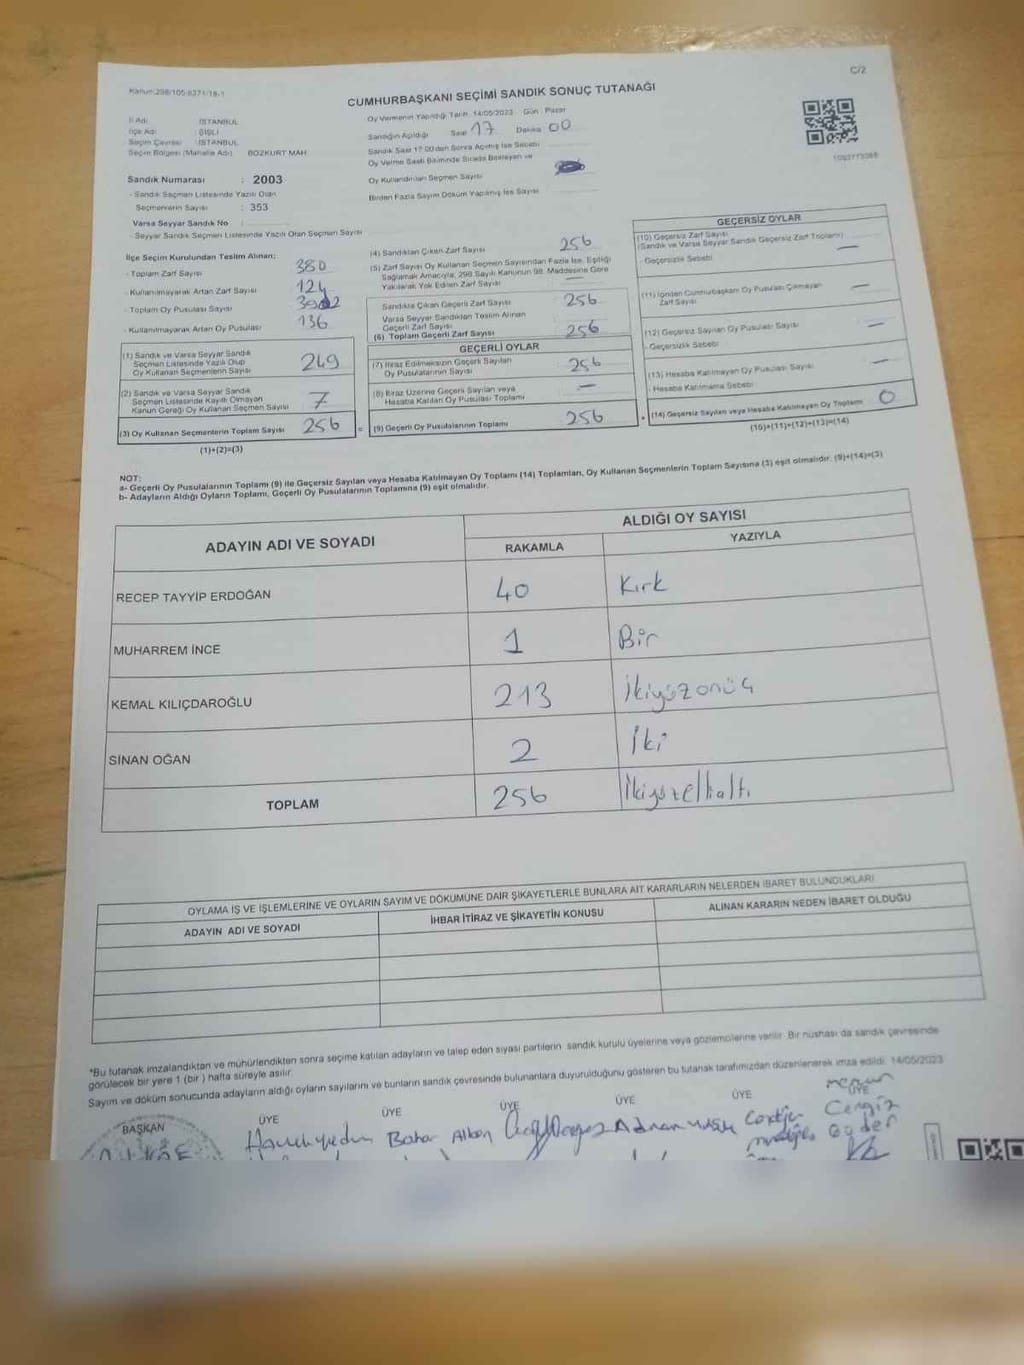 C/2
Kanun:298/105-6271/18-1
CUMHURBAŞKANI SEÇİMİ SANDIK SONUÇ TUTANAĞI
İl Adı : İSTANBUL
İlçe Adı : ŞİŞLİ
Seçim Çevresi : İSTANBUL
Seçim Bölgesi (Mahalle Adı) : BOZKURT MAH.
Sandık Numarası : 2003
- Sandık Seçmen Listesinde Yazılı Olan
Seçmenlerin Sayısı : 353
Varsa Seyyar Sandık No :
- Seyyar Sandık Seçmen Listesinde Yazılı Olan Seçmen Sayısı
Oy Vermenin Yapıldığı Tarih : 14/05/2023 Gün : Pazar
Sandığın Açıldığı Saat 17 Dakika 00
Sandık Saat 17:00'den Sonra Açılmış İse Sebebi
Oy Verme Saati Bitiminde Sırada Bekleyen ve
Oy Kullandırılan Seçmen Sayısı
Birden Fazla Sayım Döküm Yapılmış İse Sayısı
İlçe Seçim Kurulundan Teslim Alınan;
- Toplam Zarf Sayısı 380
- Kullanılmayarak Artan Zarf Sayısı 124
- Toplam Oy Pusulası Sayısı
- Kullanılmayarak Artan Oy Pusulası 136
(1) Sandık ve Varsa Seyyar Sandık
Seçmen Listesinde Yazılı Olup
Oy Kullanan Seçmenlerin Sayısı 249
(2) Sandık ve Varsa Seyyar Sandık
Seçmen Listesinde Kayıtlı Olmayan
Kanun Gereği Oy Kullanan Seçmen Sayısı 7
(3) Oy Kullanan Seçmenlerin Toplam Sayısı 256 =
(1)+(2)=(3)
(4) Sandıktan Çıkan Zarf Sayısı 256
(5) Zarf Sayısı Oy Kullanan Seçmen Sayısından Fazla İse, Eşitliği
Sağlamak Amacıyla, 298 Sayılı Kanunun 98. Maddesine Göre
Yakılarak Yok Edilen Zarf Sayısı —
Sandıkta Çıkan Geçerli Zarf Sayısı 256
Varsa Seyyar Sandıktan Teslim Alınan
Geçerli Zarf Sayısı
(6) Toplam Geçerli Zarf Sayısı 256
GEÇERLİ OYLAR
(7) İtiraz Edilmeksizin Geçerli Sayılan
Oy Pusulalarının Sayısı 256
(8) İtiraz Üzerine Geçerli Sayılan veya
Hesaba Katılan Oy Pusulası Toplamı —
(9) Geçerli Oy Pusulalarının Toplamı 256 +
GEÇERSİZ OYLAR
(10) Geçersiz Zarf Sayısı
(Sandık ve Varsa Seyyar Sandık Geçersiz Zarf Toplamı) —
- Geçersizlik Sebebi
(11) İçinden Cumhurbaşkanı Oy Pusulası Çıkmayan
Zarf Sayısı —
(12) Geçersiz Sayılan Oy Pusulası Sayısı —
- Geçersizlik Sebebi
(13) Hesaba Katılmayan Oy Pusulası Sayısı —
- Hesaba Katılmama Sebebi
(14) Geçersiz Sayılan veya Hesaba Katılmayan Oy Toplamı 0
(10)+(11)+(12)+(13)=(14)
NOT:
a- Geçerli Oy Pusulalarının Toplamı (9) ile Geçersiz Sayılan veya Hesaba Katılmayan Oy Toplamı (14) Toplamları, Oy Kullanan Seçmenlerin Toplam Sayısına (3) eşit olmalıdır. (9)+(14)=(3)
b- Adayların Aldığı Oyların Toplamı, Geçerli Oy Pusulalarının Toplamına (9) eşit olmalıdır.
ADAYIN ADI VE SOYADI
ALDIĞI OY SAYISI
RAKAMLA YAZIYLA
RECEP TAYYİP ERDOĞAN 40 Kırk
MUHARREM İNCE 1 Bir
KEMAL KILIÇDAROĞLU 213 İkiyüzonüç
SİNAN OĞAN 2 İki
TOPLAM 256 İkiyüzellialtı
OYLAMA İŞ VE İŞLEMLERİNE VE OYLARIN SAYIM VE DÖKÜMÜNE DAİR ŞİKAYETLERLE BUNLARA AİT KARARLARIN NELERDEN İBARET BULUNDUKLARI
ADAYIN ADI VE SOYADI İHBAR İTİRAZ VE ŞİKAYETİN KONUSU ALINAN KARARIN NEDEN İBARET OLDUĞU
*Bu tutanak imzalandıktan ve mühürlendikten sonra seçime katılan adayların ve talep eden siyasi partilerin sandık kurulu üyelerine veya gözlemcilerine verilir. Bir nüshası da sandık çevresinde
görülecek bir yere 1 (bir) hafta süreyle asılır.
Sayım ve döküm sonucunda adayların aldığı oyların sayılarını ve bunların sandık çevresinde bulunanlara duyurulduğunu gösteren bu tutanak tarafımızdan düzenlenerek imza edildi. 14/05/2023
BAŞKAN ÜYE ÜYE ÜYE ÜYE ÜYE ÜYE
Bahar
Adnan
Cengiz